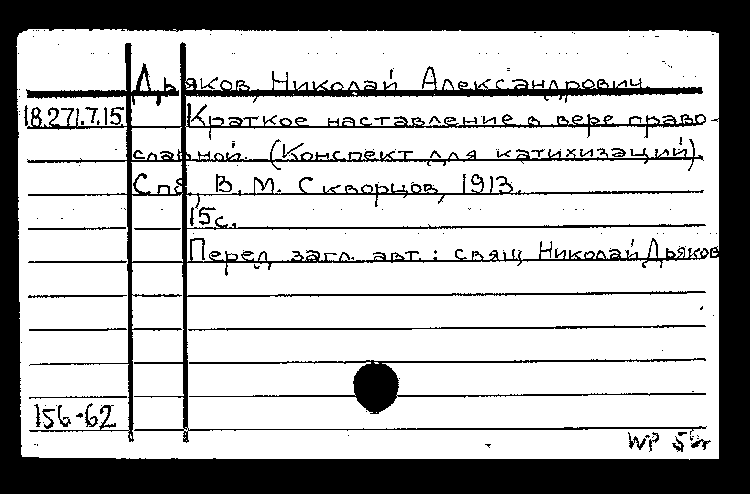 Дьяков, Николай Александрович.
18.271.7.15 Краткое наставление в вере право-
славной. (Конспект для катихизаций).
Спб., В. М. Скворцов, 1913.
15 с.
Перед загл. авт.: свящ Николай Дьяков
156-62
WP